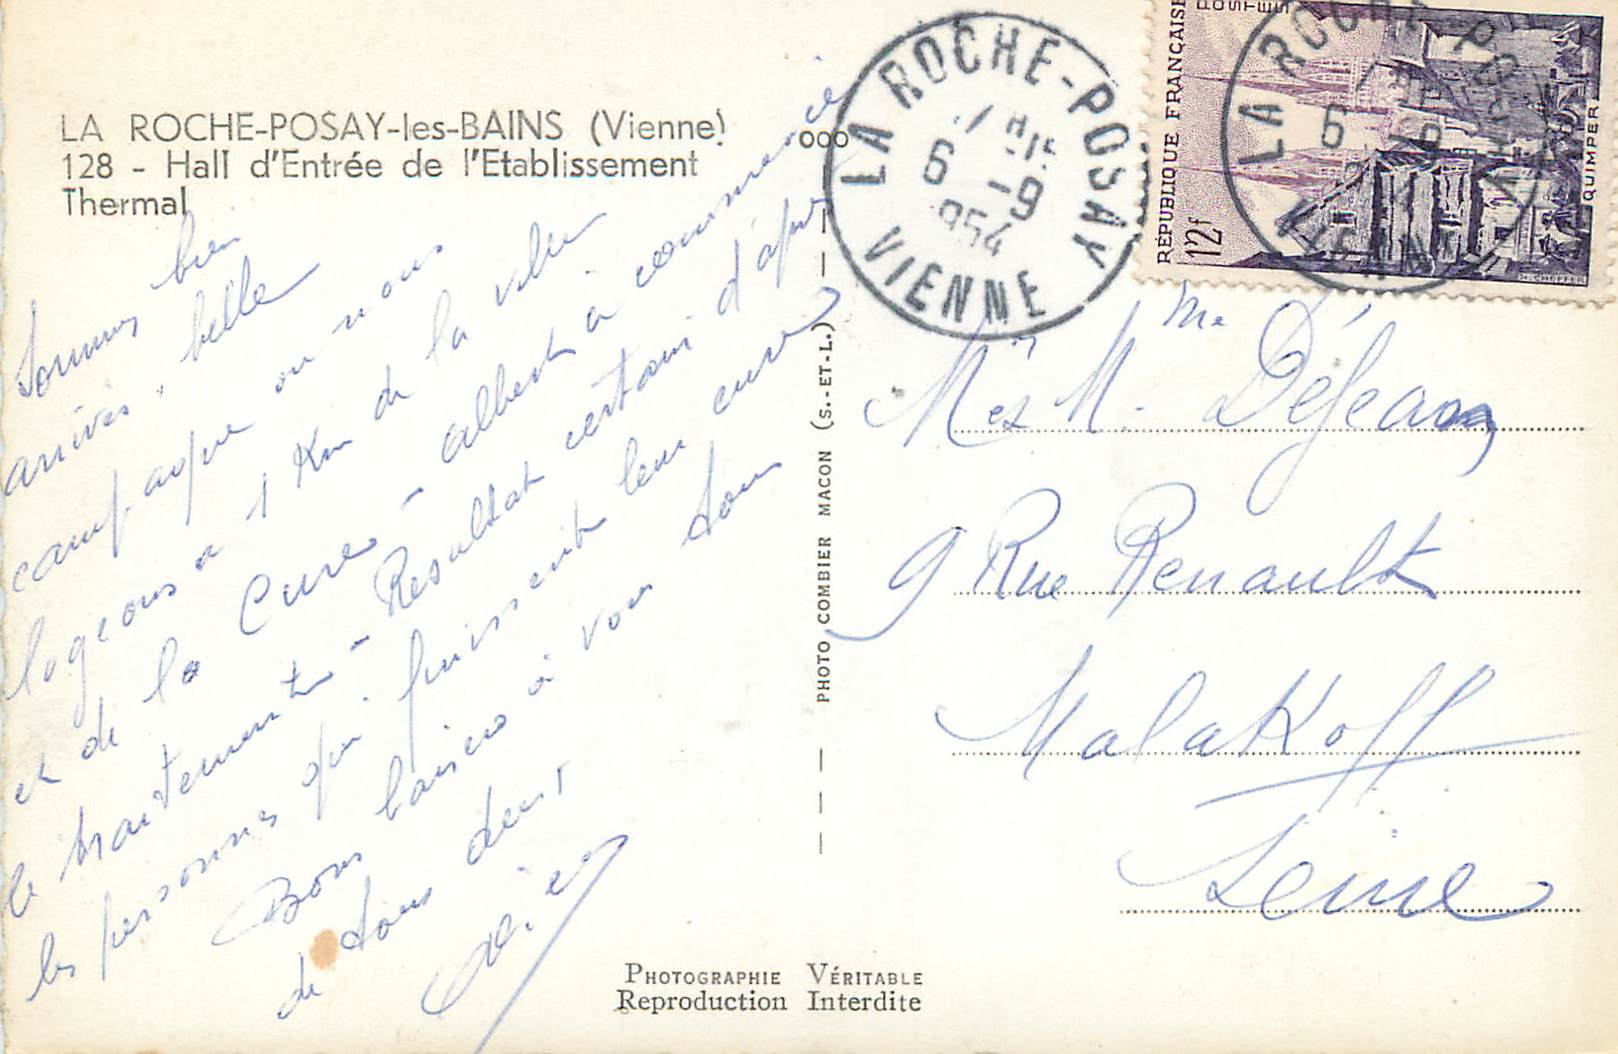 LA ROCHE-POSAY-les-BAINS (Vienne)
128 - Hall d'Entrée de l'Etablissement
Thermal
Sommes bien
arrivés, belle
campagne ou nous
logeons a 1 Km de la ville
et de la Cure - albert a commencé
le traitement - Resultat certain d'après
les personnes qui finissent leur cure
Bons baisers à vous tous
de tous deux
ooo
PHOTO COMBIER MACON (S.-ET-L.)
PHOTOGRAPHIE VÉRITABLE
Reproduction Interdite
LA ROCHE-POSAY
6 -9
1954
VIENNE
RÉPUBLIQUE FRANÇAISE
POSTES
12f
QUIMPER
LA ROCHE-POSAY
6
VIENNE
Me
Mes M. Déjean
9 Rue Renault
Malakoff
Seine